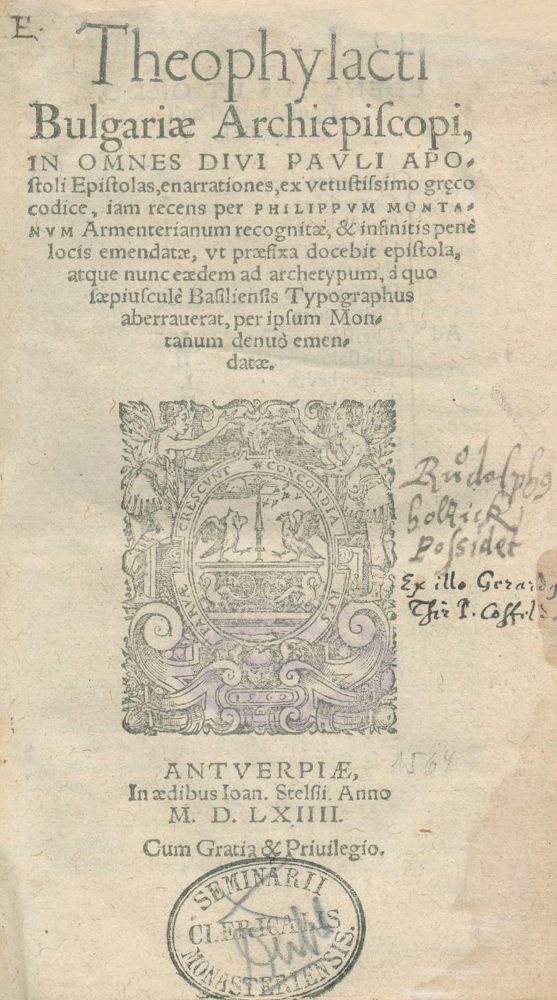 E.
Theophylacti
Bulgariæ Archiepiſcopi,
IN OMNES DIVI PAVLI APO-
ſtoli Epiſtolas, enarrationes, ex vetuſtiſsimo gręco
codice, iam recens per PHILIPPVM MONTA-
NVM Armenterianum recognitæ, & infinitis penè
locis emendatæ, vt præfixa docebit epiſtola,
atque nunc eædem ad archetypum, à quo
ſæpiuſculè Baſilienſis Typographus
aberrauerat, per ipſum Mon-
tanum denuò emen-
datæ.
CONCORDIA RES PARVÆ CRESCVNT
1560
Růdolphus
Possidet
Ex illo Gerardus
1564
ANTVERPIÆ,
In ædibus Ioan. Stelſii. Anno
M. D. LXIIII.
Cum Gratia & Priuilegio.
SEMINARII
CLERICALIS
MONASTERIENSIS.